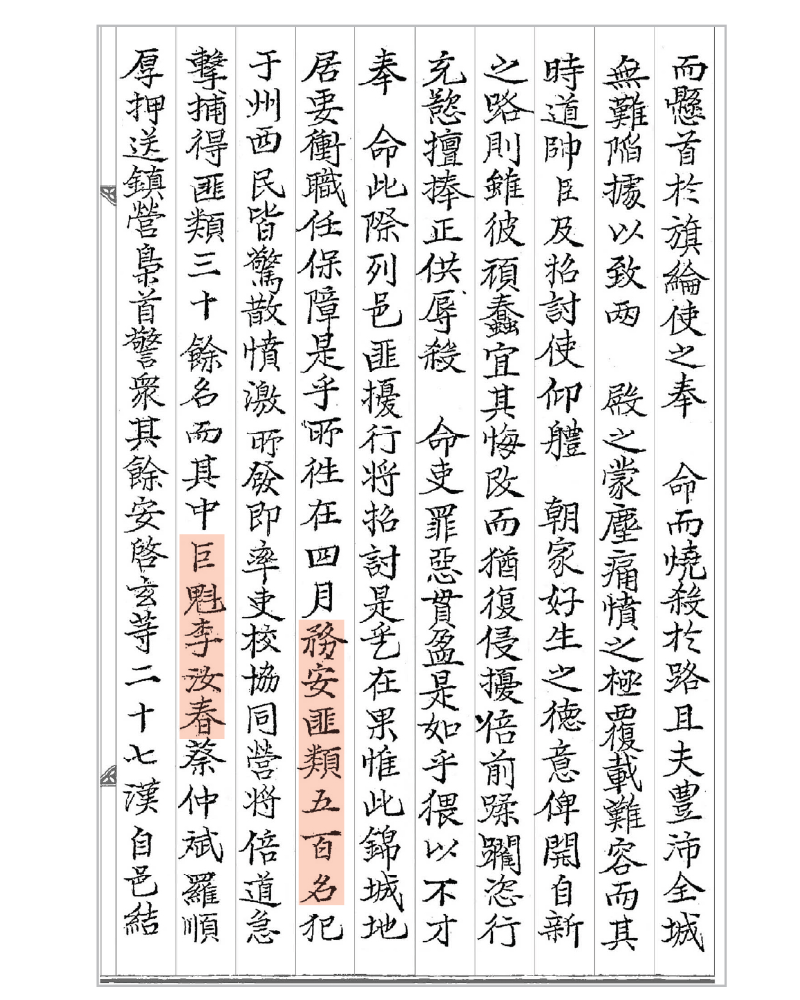 而懸首於旗綸使之奉 命而燒殺於路且夫豊沛全城
無難陷據以致兩 殿之蒙塵痛憤之極覆載難容而其
時道帥臣及招討使仰軆 朝家好生之德意俾開自新
之路則雖彼頑蠢宜其悔改而猶復侵擾倍前蹂躙恣行
充慾擅捧正供辱殺 命吏罪惡貫盈是如乎猥以不才
奉 命此際列邑匪擾行将招討是乎在果惟此錦城地
居要衝職任保障是乎所徃在四月務安匪類五百名犯
于州西民皆驚散憤激所發即率吏校恊同營将倍道急
擊捕得匪類三十餘名而其中巨魁李汝春蔡仲斌羅順
厚押送鎮營梟首警衆其餘安啓玄等二十七漢自邑結